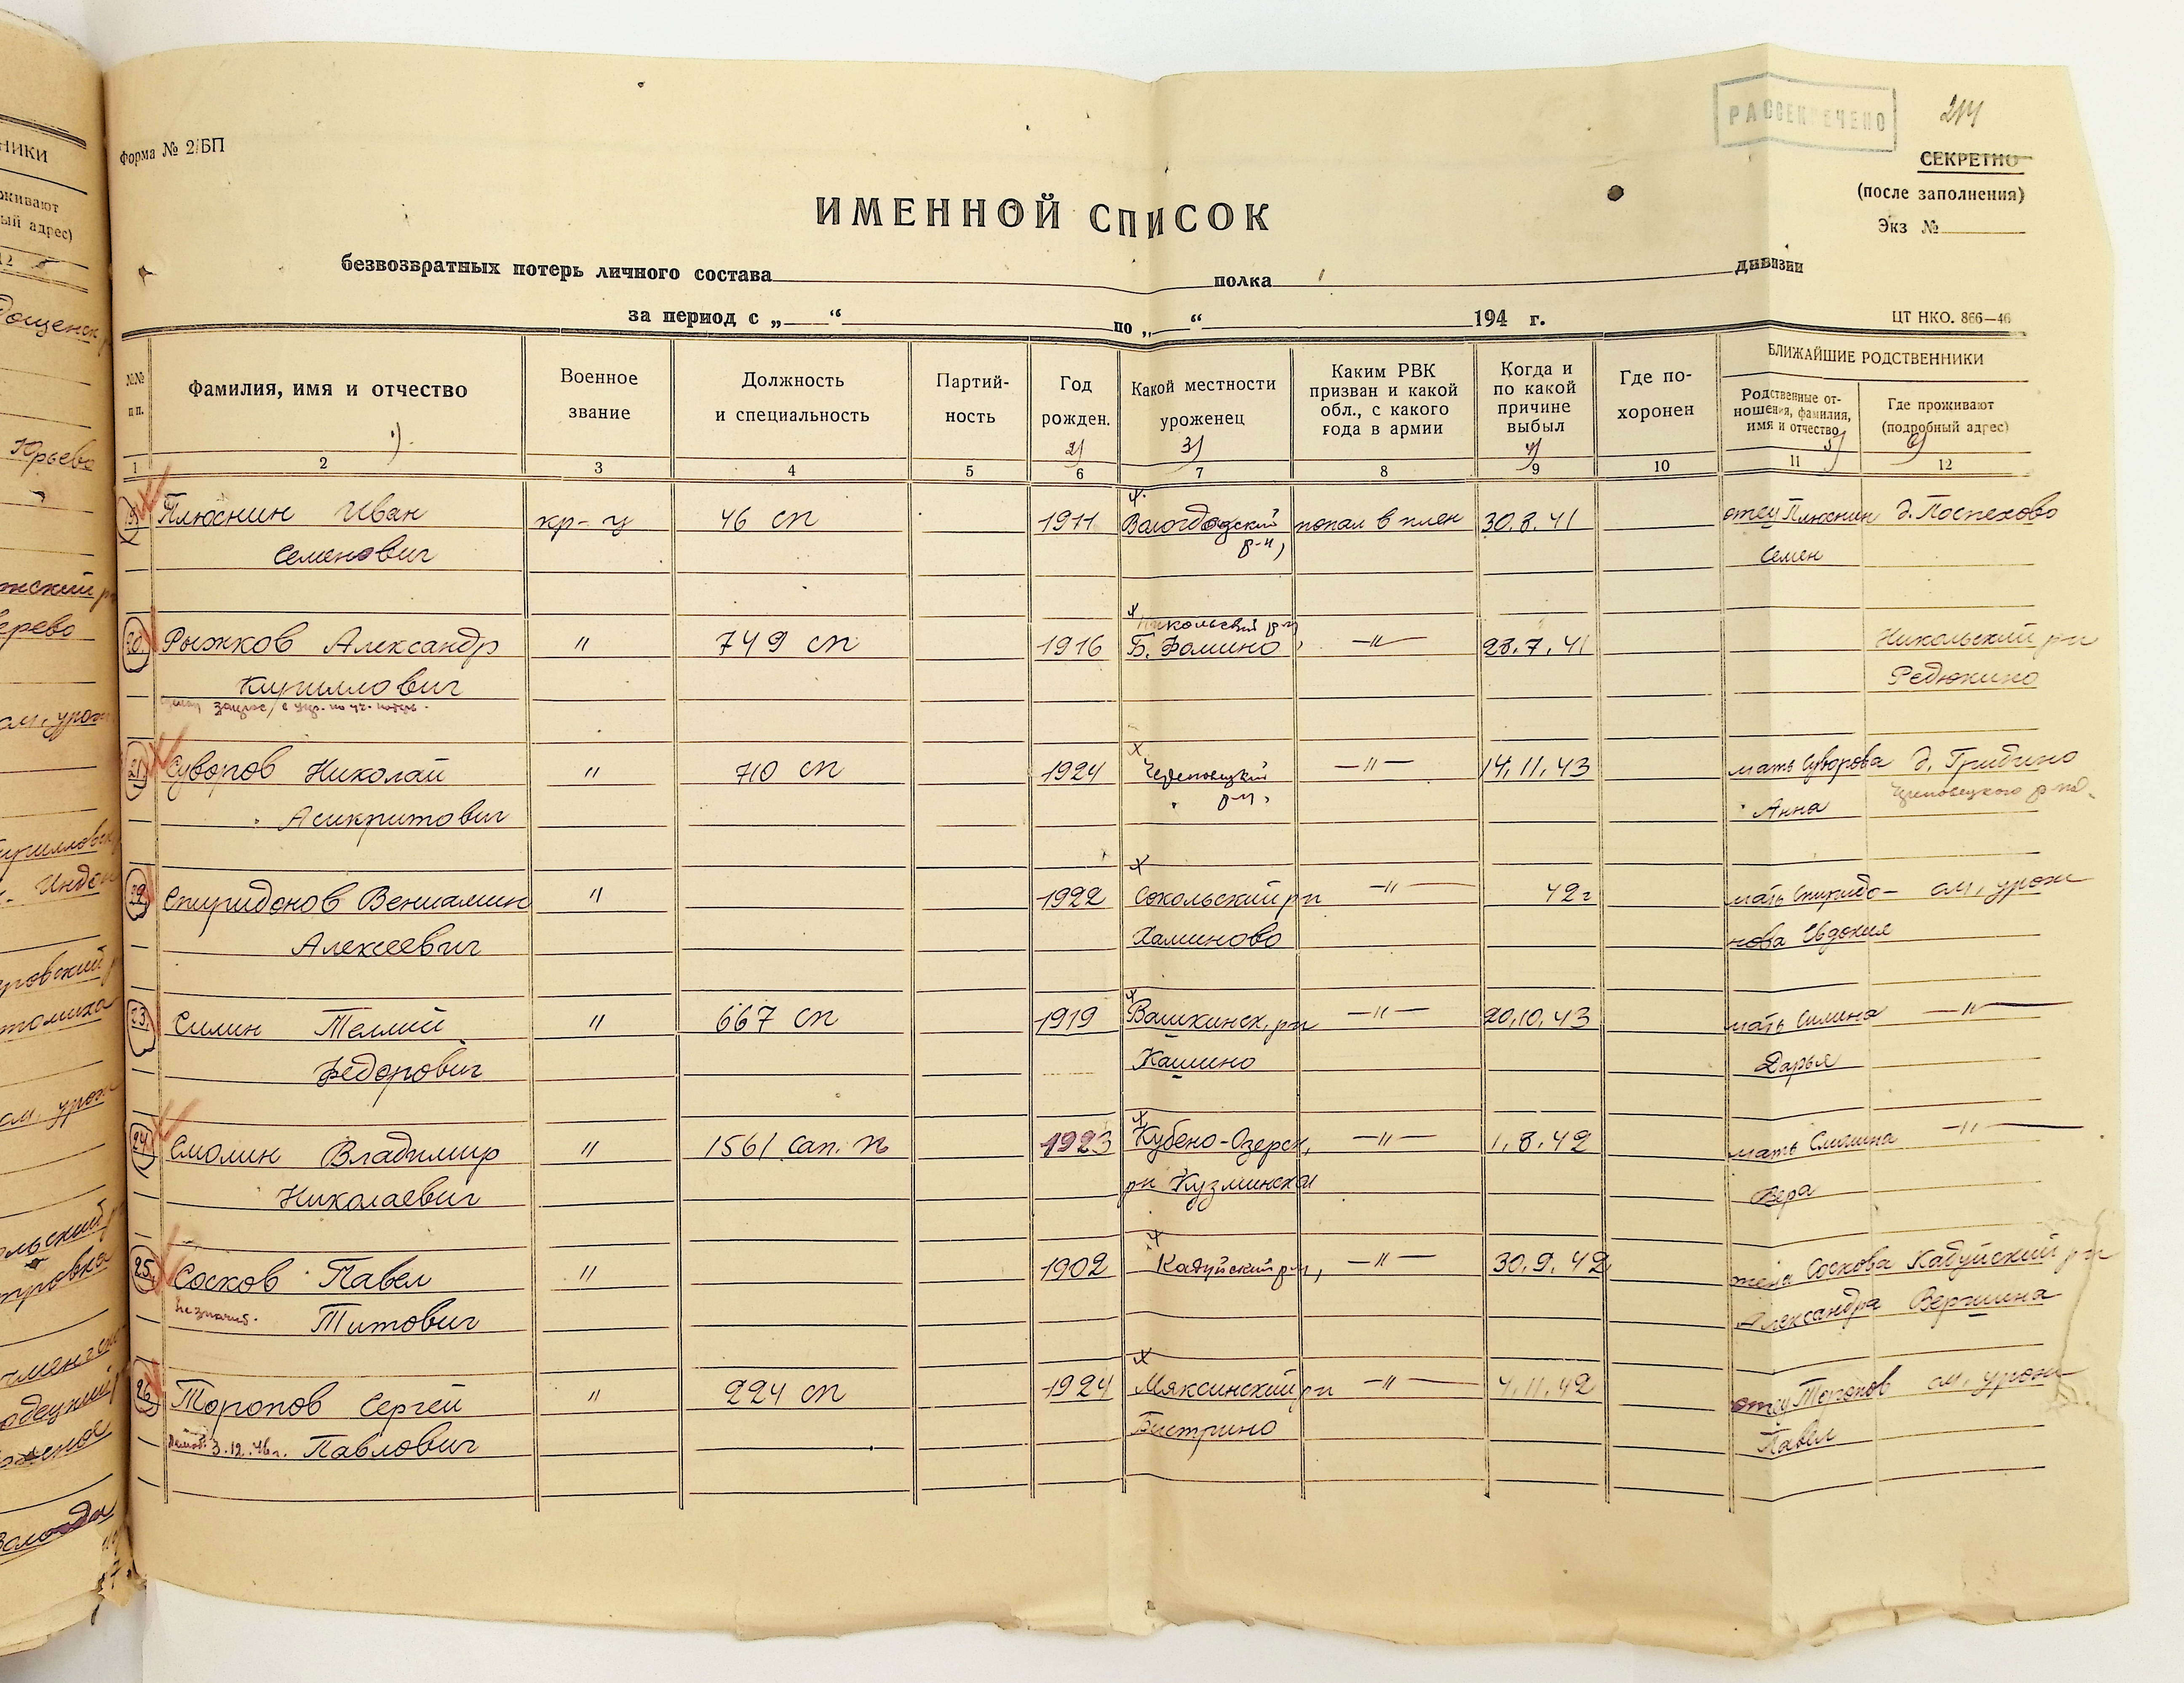 НИКИ
живают
ый адрес)
12
Юрьево
ерево
Форма № 2/БП
РАССЕКРЕЧЕНО
214
СЕКРЕТНО
(после заполнения)
Экз №
ИМЕННОЙ СПИСОК
безвозвратных потерь личного состава полка дивизии
за период с „ “ по „ “ 194 г.
ЦТ НКО. 866—46
№№ пп.
Фамилия, имя и отчество
1)
Военное
звание
Должность
и специальность
Партий-
ность
Год
рожден.
2)
Какой местности
уроженец
3)
Каким РВК
призван и какой
обл., с какого
года в армии
Когда и
по какой
причине
выбыл
4)
Где по-
хоронен
БЛИЖАЙШИЕ РОДСТВЕННИКИ
Родственные от-
ношения, фамилия,
имя и отчество
5)
Где проживают
(подробный адрес)
6)
1 2 3 4 5 6 7 8 9 10 11 12
19. Плюснин Иван кр-ц 46 сп 1911 Вологодский попал в плен 30.8.41 отец Плюснин д. Поспехово
Семенович р-н, Семен
Никольский р-н
20. Рыжков Александр " 749 сп 1916 Б. Фомино, —"— 28.7.41 Никольский рн
Кириллович Редюкино
21. Суворов Николай " 710 сп 1924 Череповецкий —"— 14.11.43 мать Суворова д. Грибино
Асикритович р-н, Анна Череповецкого р-на.
22. Спиридонов Вениамин " 1922 Сокольский рн —"— 42г мать Спиридо- ам, урож
Алексеевич Хаминово нова Евдокия
23. Силин Теллий " 667 сп 1919 Вашкинск, рн —"— 20.10.43 мать Силина —"—
Федорович Кашино Дарья
24. Смолин Владимир " 1561 сап. п 1923 Кубено-Озерск, —"— 1.8.42 мать Смолина —"—
Николаевич рн Кузминска Вера
25. Сосков Павел " 1902 Кадуйский р-н, —"— 30.9.42 жена Соскова Кадуйский рн
Не значит. Титович Александра Вершина
26. Торопов Сергей " 224 сп 1924 Мяксинский рн —"— 4.11.42 отец Торопов ам, урож
Демоб. 3.12.46г. Павлович Быстрино Павел